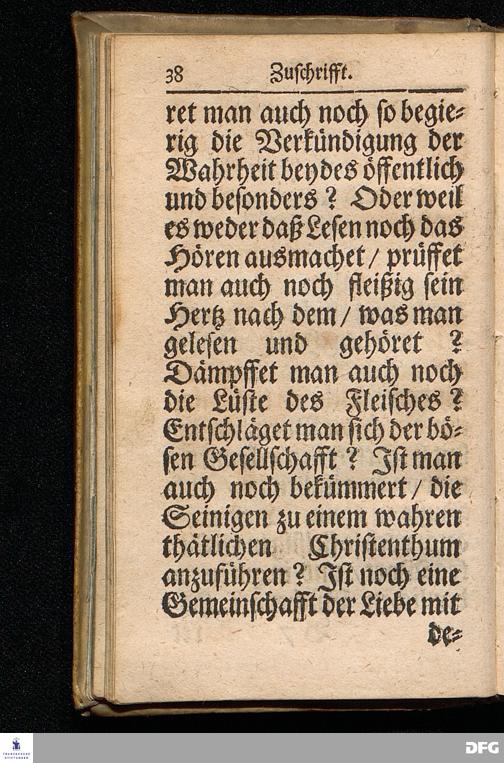 38 Zuschrifft.
ret man auch noch so begie-
rig die Verkündigung der
Wahrheit beydes öffentlich
und besonders? Oder weil
es weder daß Lesen noch das
Hören ausmachet / prüffet
man auch noch fleißig sein
Hertz nach dem / was man
gelesen und gehöret?
Dämpffet man auch noch
die Lüste des Fleisches?
Entschläget man sich der bö-
sen Gesellschafft? Ist man
auch noch bekümmert / die
Seinigen zu einem wahren
thätlichen Christenthum
anzuführen? Ist noch eine
Gemeinschafft der Liebe mit
de-
FRANCKESCHE
STIFTUNGEN
DFG